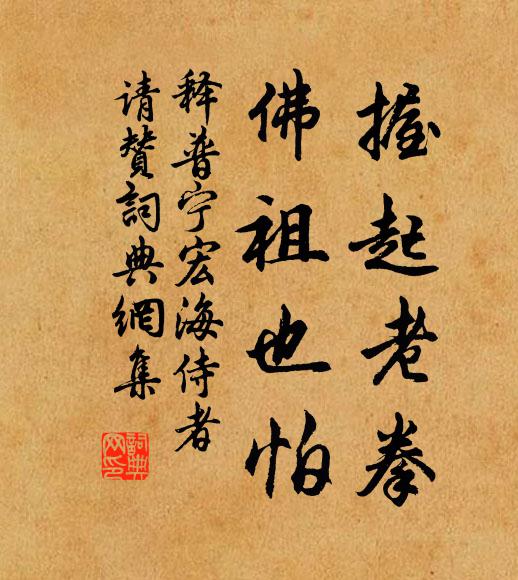 握起老拳
佛祖也怕
释普宁宏海侍者
请赞詞典網集
詞典
网印